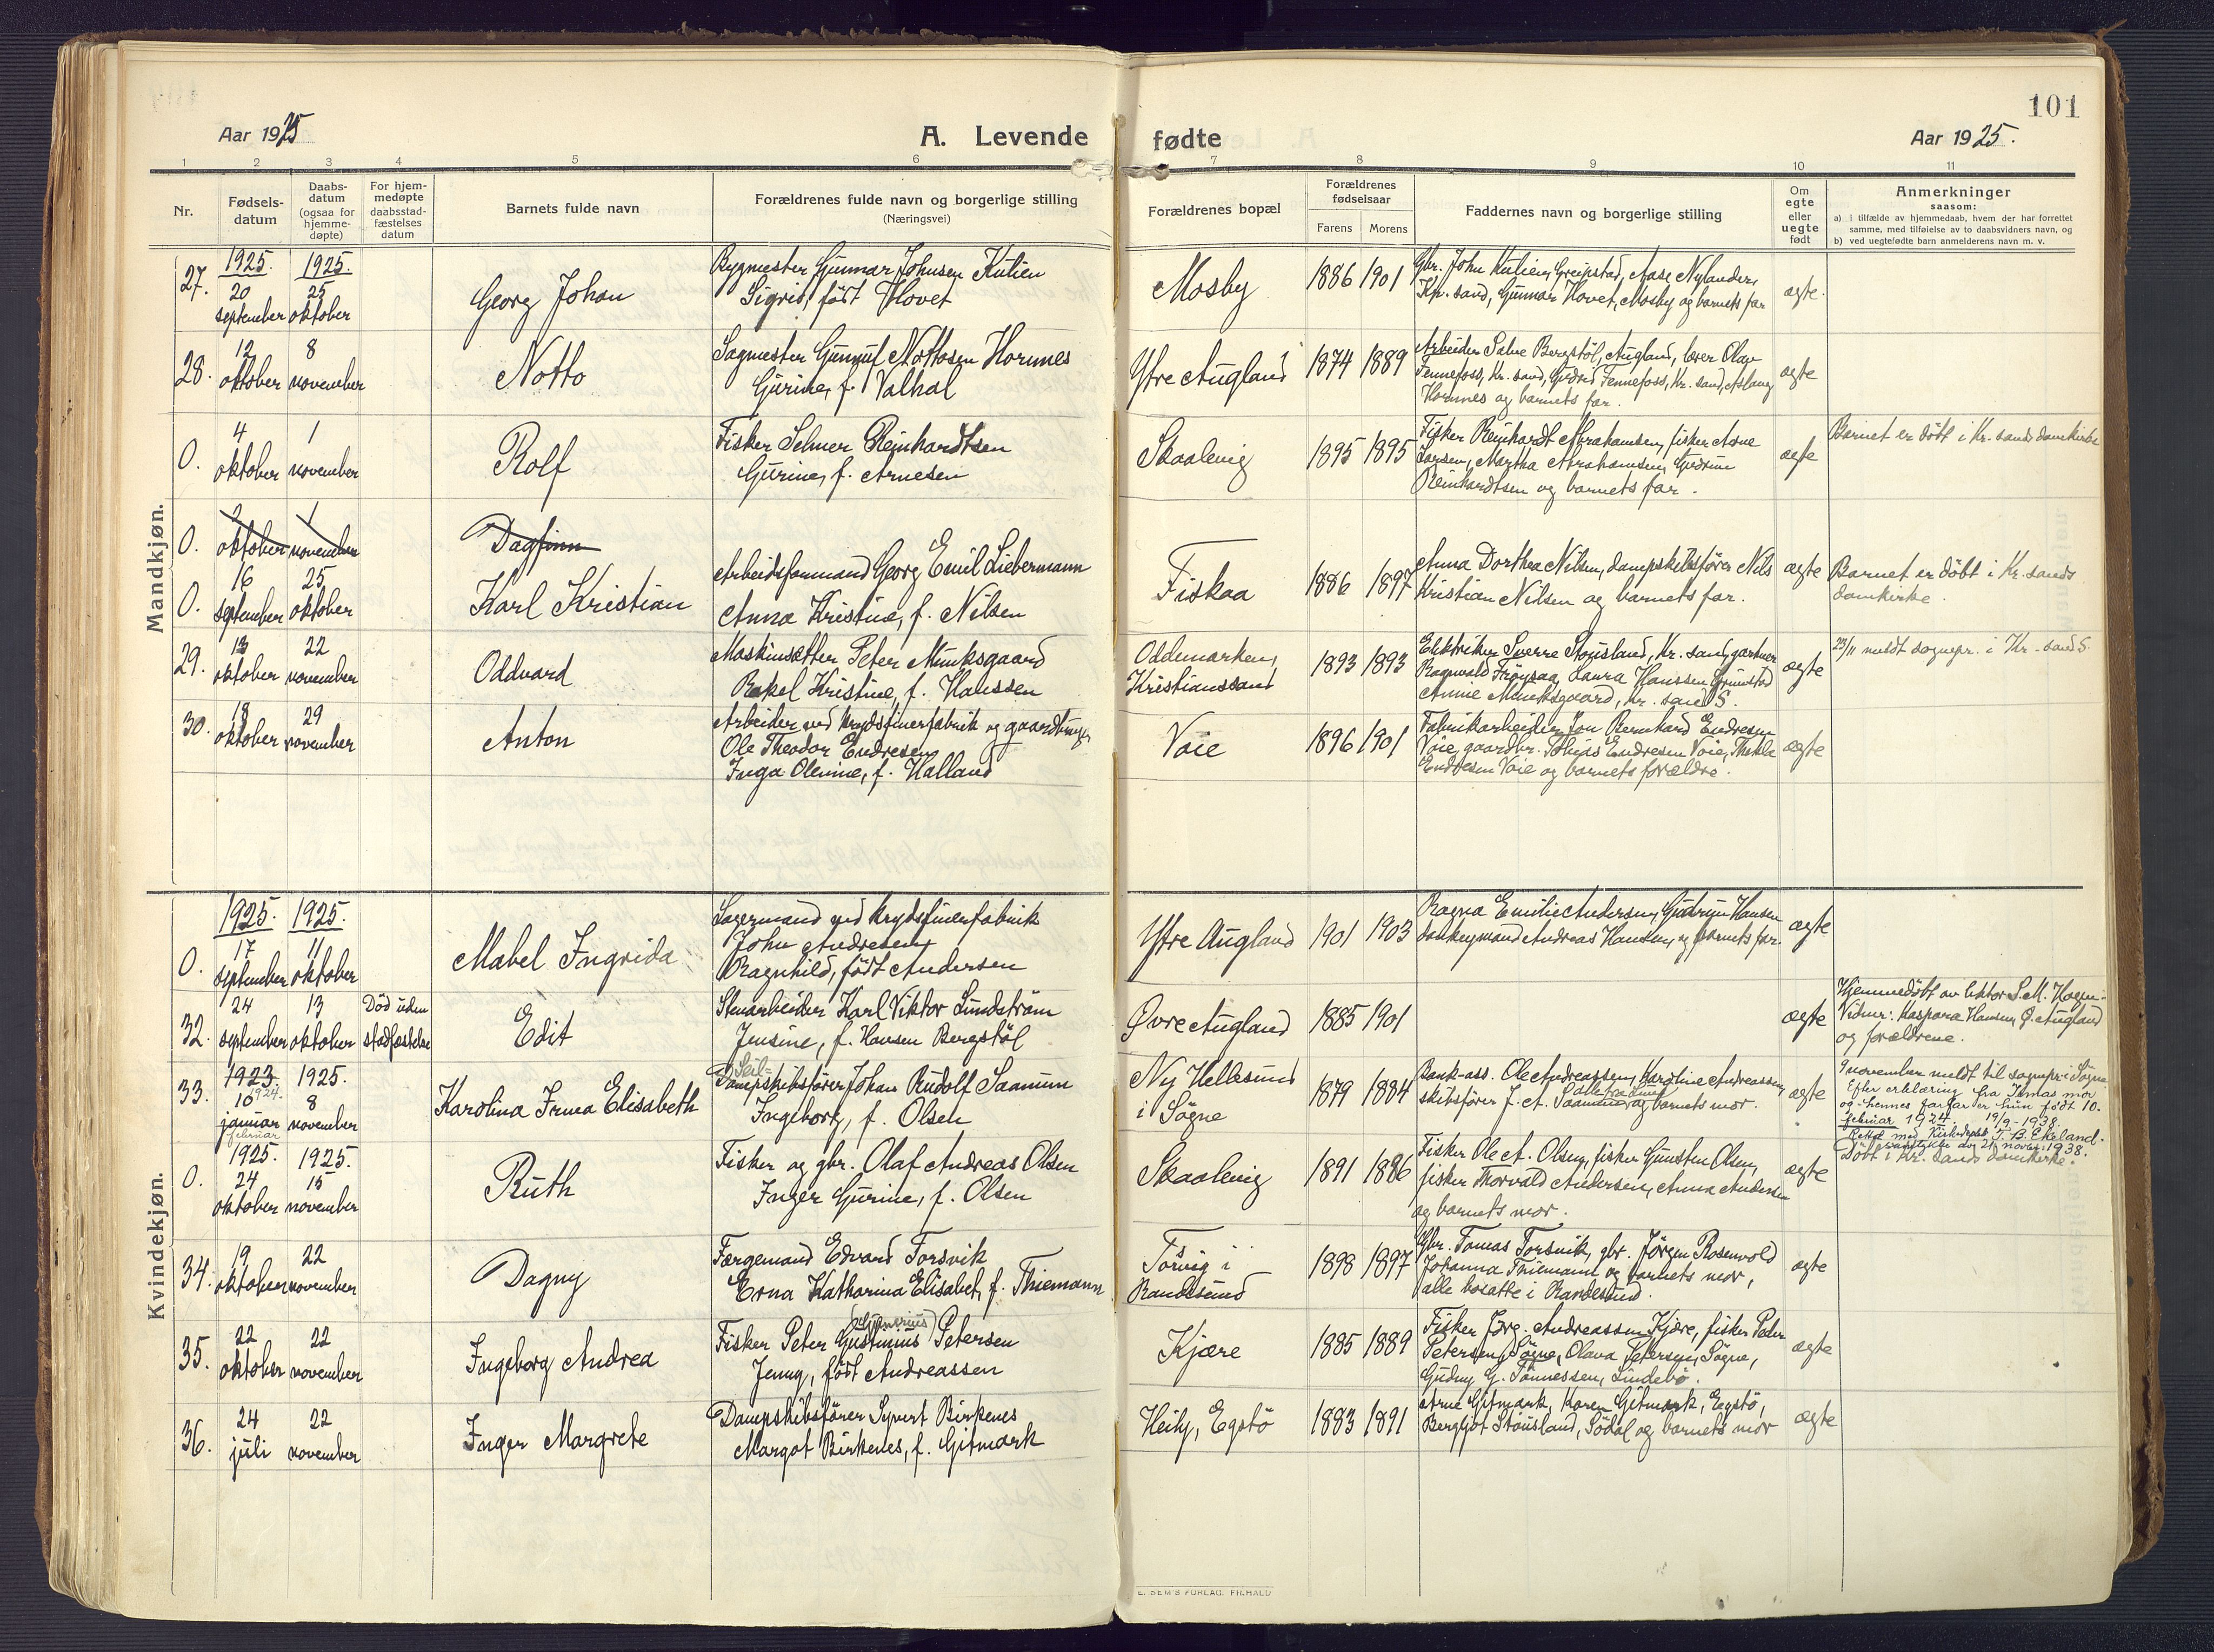 101
Aar 1925
A. Levende
fødte
Aar 1925.
1 2 3 4 5 6 7 8 9 10 11
Nr.
Fødsels-
datum
Daabs-
datum
(ogsaa for
hjemme-
døpte)
For hjem-
medøpte
daabsstad-
fæstelses
datum
Barnets fulde navn
Forældrenes fulde navn og borgerlige stilling
(Næringsvei)
Forældrenes bopæl
Forældrenes
fødselsaar
Farens Morens
Faddernes navn og borgerlige stilling
Om
egte
eller
uegte
født
Anmerkninger
saasom:
a) i tilfælde av hjemmedaab, hvem der har forrettet
samme, med tilføielse av to daabsvidners navn, og
b) ved uegtefødte barn anmelderens navn m. v.
Mandkjøn.
27.
1925. 1925.
20 25
september oktober
Georg Johan
Bygmester Gunnar Johnsen Kulien
Sigrid, født Hovet
Mosby
1886 1901
Gbr. John Kulien, Greipstad, Aase Nylander,
Kr. sand, Gunnar Hovet, Mosby og barnets far
ægte.
28.
12 8
oktober november
Notto
Sagmester Gunnuf Nottosen Hornnes
Gurine, f. Valhal
Ytre Augland
1874 1889
Arbeider Salve Bergstøl, Augland, lærer Olav
Fennefoss, Kr. sand, Gudrid Fennefoss, Kr. sand, Aslaug
Hornnes og barnets far.
ægte
0.
4 1
oktober november
Rolf
Fisker Selmer Reinhardtsen
Gurine, f. Arnesen
Skaalevig
1895 1895
Fisker Reinhardt Abrahamsen, fisker Arne
Larsen, Martha Abrahamsen, Gudrun
Reinhardtsen og barnets far.
ægte
Barnet er døbt i Kr. sands domkirke
0.
2 1
oktober november
Dagfinn
0.
16 25
september oktober
Karl Kristian
Arbeidsformand Georg Emil Liebermann
Anna Kristine, f. Nilsen
Fiskaa
1886 1897
Anna Dorthea Nilsen, dampskibsfører Nils
Kristian Nilsen og barnets far.
ægte
Barnet er døbt i Kr. sands
domkirke.
29.
13 22
oktober november
Oddvard
Maskinsætter Peter Munksgaard
Rakel Kristine, f. Hanssen
Oddemarken,
Kristianssand
1893 1893
Elektriker Sverre Stousland, Kr. sand, gartner
Ragnvald Frøysaa, Laura Hanssen Grimstad
Annie Munksgaard, Kr. sand S.
ægte
23/11 meldt sognepr. i Kr.-sand S.
30.
18 29
oktober november
Anton
Arbeider ved krydsfinerfabrik og gaardbruger
Ole Theodor Endresen
Inga Olevine, f. Halland
Voie
1896 1901
Fabrikarbeider Jon Bernhard Endresen
Voie, gaardbr. Tobias Endresen Voie, Thekla
Endresen Voie og barnets forældre.
ægte
Kvindekjøn.
0.
1925. 1925.
17 11
september oktober
Mabel Ingrida
Lagermand ved krydsfinerfabrik
John Andresen,
Ragnhild, født Andersen
Ytre Augland
1901 1903
Ragna Emilie Andersen, Gudrun Hansen
donkeymand Andreas Hansen, og barnets far.
ægte
32.
24 13
september oktober
Død uden
stadfæstelse
Edit
Stenarbeider Karl Viktor Lundstrøm
Jensine, f. Hansen Bergstøl
Øvre Augland
1885 1901
ægte
Hjemmedøbt av lektor S. M. Hagen
Vidner: Kaspara Hansen, Ø. Augland
og forældrene.
33.
1923. 1925.
1924.
10 8
januar november
februar
Karolina Irma Elisabeth
Seil-
Dampskibsfører Johan Rudolf Saanum
Ingeborg, f. Olsen
Ny Hellesund
i Søgne
1879 1884
Bank-ass. Ole Andreassen, Karoline Andreassen,
skibsfører J. A. Saanum, og barnets mor.
ægte
9 november meldt til sognepr. i Søgne
Efter erklæring fra Irmas mor
og hennes farfar er hun født 10.
februar 1924. 19/9-1938.
Rettet med Kirkedept.
samtykke av 21. novbr. 1938.
0.
1925. 1925.
24 15
oktober november
Ruth
Fisker og gbr. Olaf Andreas Olsen
Inger Gurine, f. Olsen
Skaalevig
1891 1886
Fisker Ole A. Olsen, fisker Gunsten Olsen,
fisker Thorvald Andersen, Anna Andersen
og barnets mor.
ægte
Døbt i Kr. sands domkirke.
34.
19 22
oktober november
Dagny
Færgemand Edvard Torsvik
Erna Katharina Elisabet, f. Thiemann
Torvig i
Randesund
1898 1897
Gbr. Tomas Torsvik, gbr. Jørgen Rosenvold
Johanna Thiemann og barnets mor,
alle bosatte i Randesund.
ægte
35.
22 22
oktober november
Ingeborg Andrea
Fisker Peter Gustinius Petersen
Jenny, født Andreassen
Kjære
1885 1889
Fisker Jørg. Andreassen Kjære, fisker Peder
Petersen, Søgne, Olava Petersen, Søgne,
Gudny G. Tønnessen, Lindebø.
ægte
36.
24 22
juli november
Inger Margrete
Dampskibsfører Syvert Birkenes
Margot Birkenes, f. Gitmark
Egstø
1883 1891
Arne Gitmark, Karen Gitmark, Egstø,
Bergljot Stousland, Sødal og barnets mor
ægte
E. SEM'S FORLAG. FR.HALD